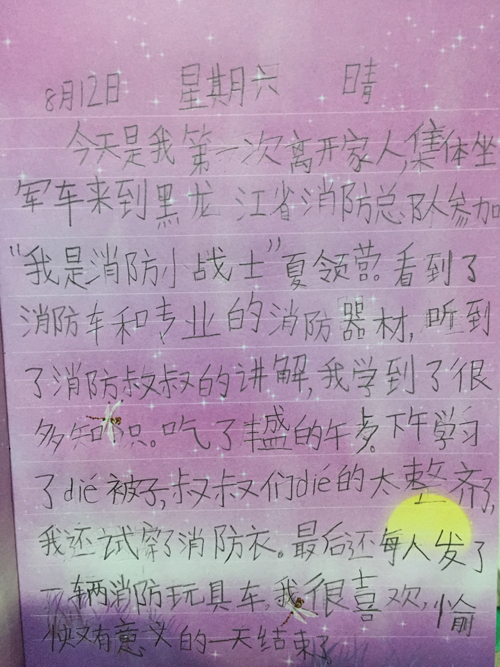 8月12日 星期六 晴
今天是我第一次离开家人,集体坐
军车来到黑龙江省消防总队参加
“我是消防小战士”夏领营。看到了
消防车和专业的消防器材,听到
了消防叔叔的讲解,我学到了很
多知识。吃了丰盛的午餐。下午学习
了dié被子,叔叔们dié的太整齐了,
我还试穿了消防衣。最后还每人发了
一辆消防玩具车。我很喜欢,愉
快又有意义的一天结束了